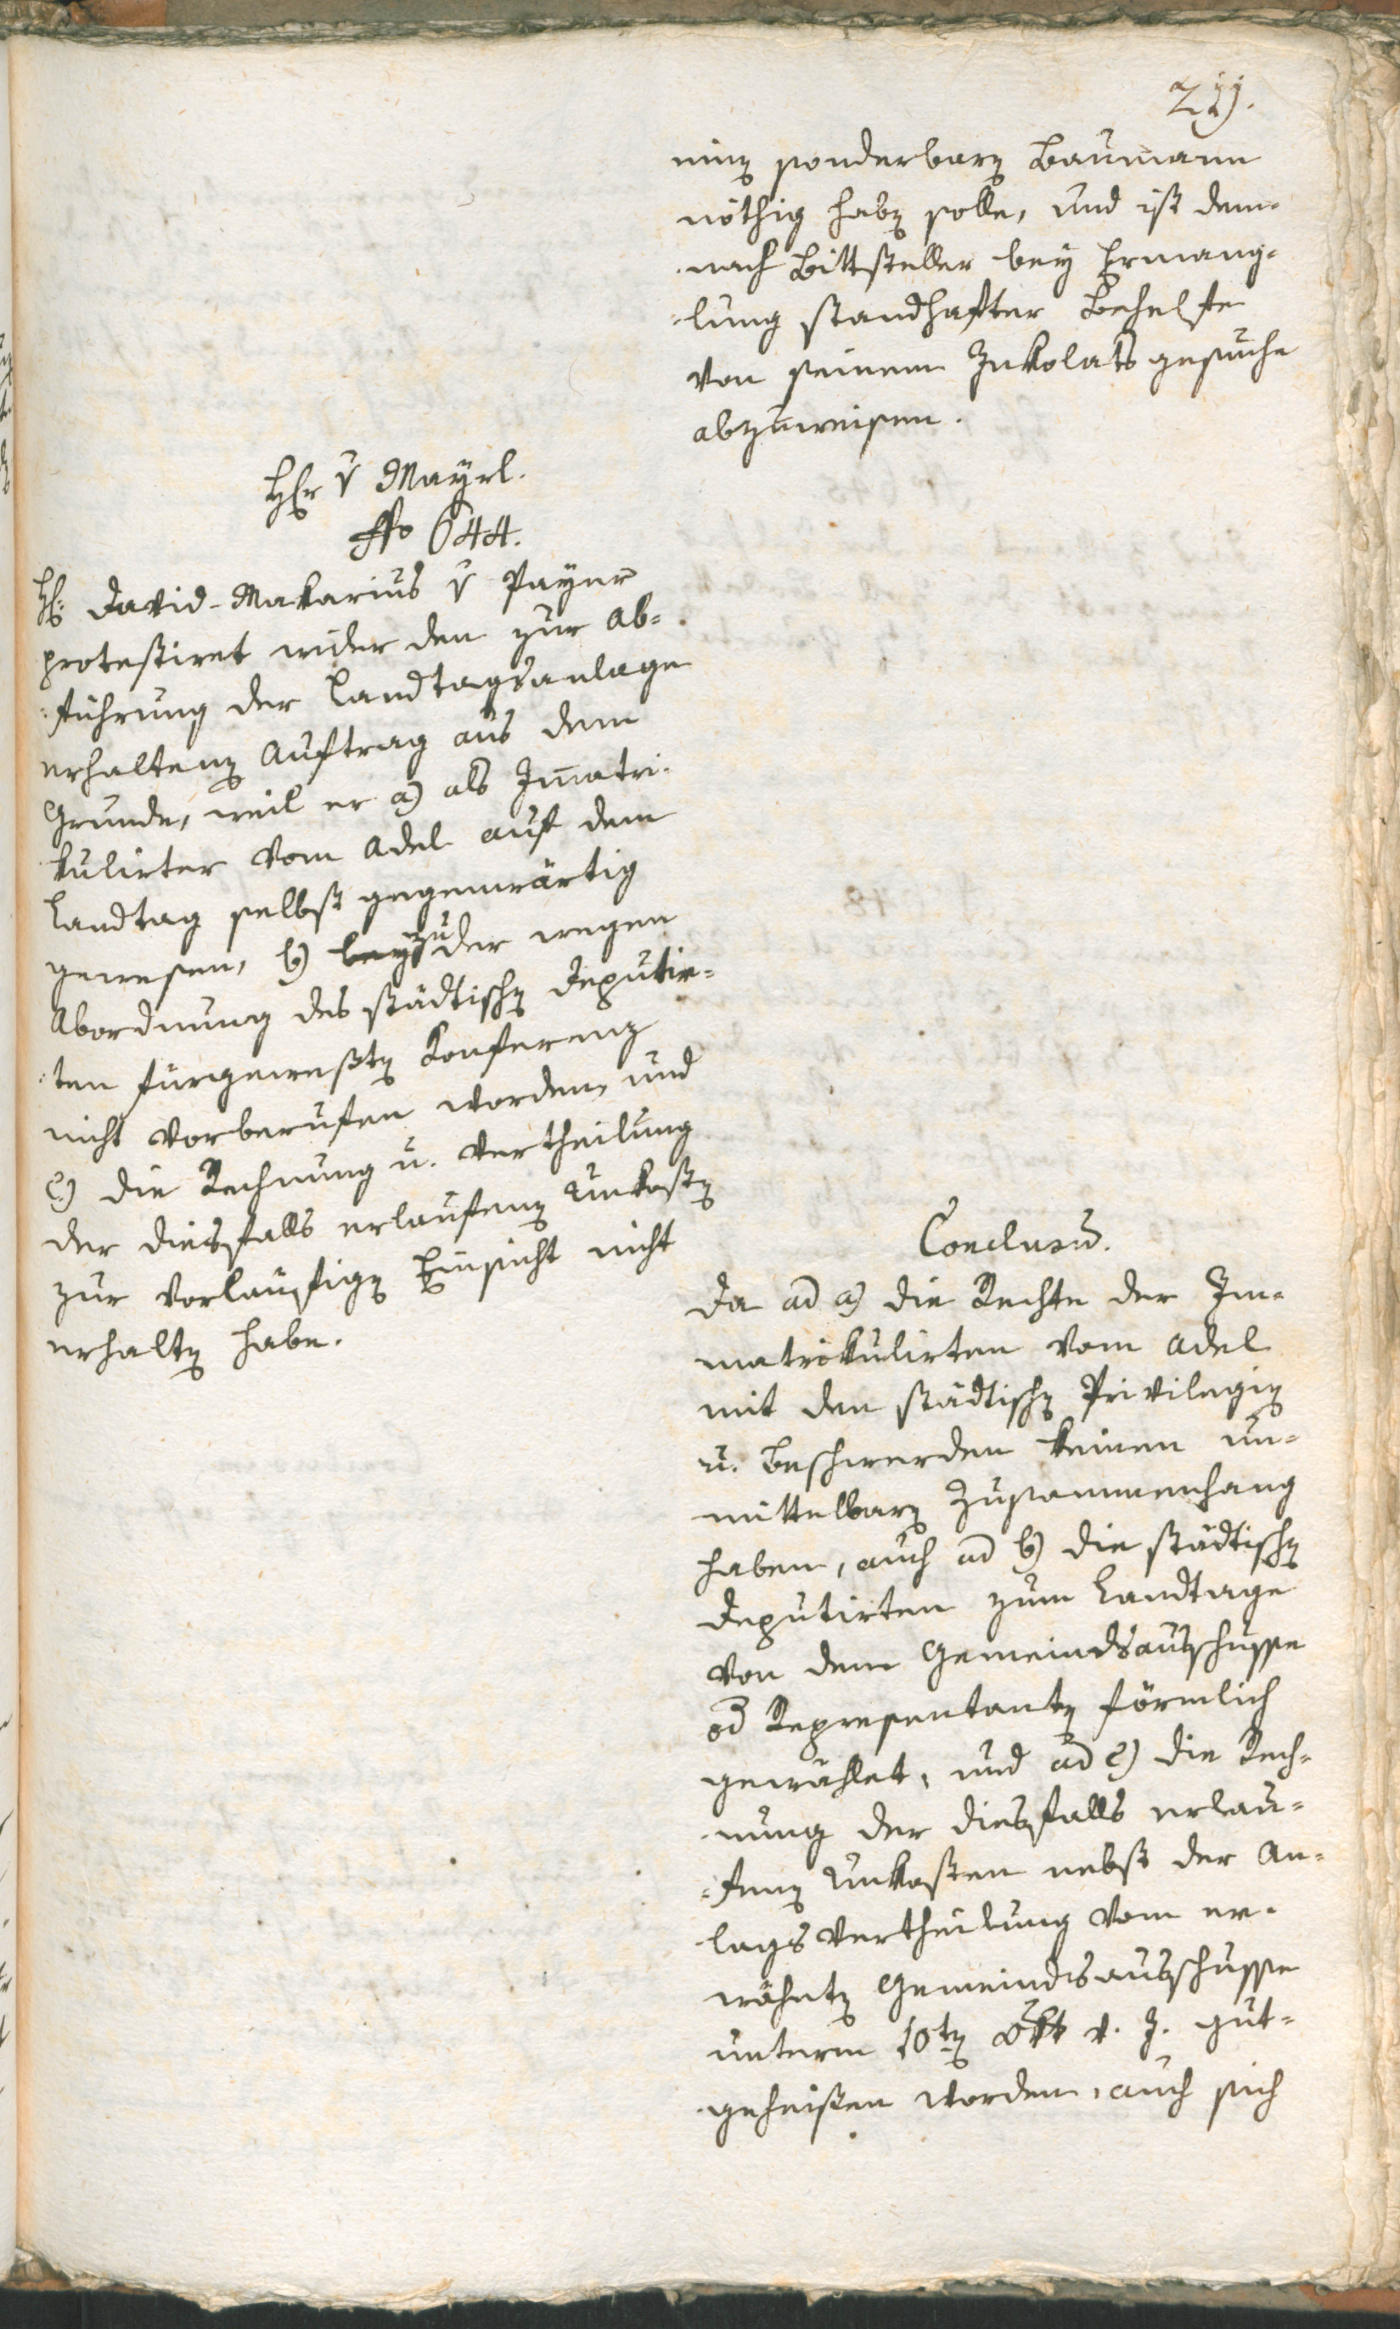 211.
einen sonderbaren Baumann
nöthig haben solle, und ist dem-
nach Bittsteller bey Ermang-
lung standhafter Behelfe
von seinem Inkolats gesuche
abzuweisen.
Herr v Mayrl.
No 644.
H: David-Makarius v Payer
protestiret wider den zur Ab-
führung der Landtagsanlage
erhaltenen Auftrag aus dem
Grunde, weil er a) als Immatri-
kulirter vom Adel auf dem
Landtag selbst gegenwärtig
gewesen, b) bey zu der wegen
Abordnung des städtischen Deputir-
ten fürgewesten Konferenz
nicht vorberufen worden, und
c) die Rechnung u. Vertheilung
der diesfalls erlaufenen Unkosten
zur vorläufigen Einsicht nicht
erhalten habe.
Conclusum.
Da ad a) die Rechte der Im-
matrikulirten vom Adel
mit den städtischen Privilegien
u. Beschwerden keinen un-
mittelbaren Zusammenhang
haben, auch ad b) die städtischen
Deputirten zum Landtage
von dem Gemeindsausschusse
od Representanten förmlich
gewählet, und ad c) die Rech-
nung der diesfalls erlau-
fenen Unkosten nebst der An-
lagsvertheilung vom er-
wähnten Gemeindsausschusse
unterm 10ten Okt v. J. gut-
geheißen worden, auch sich